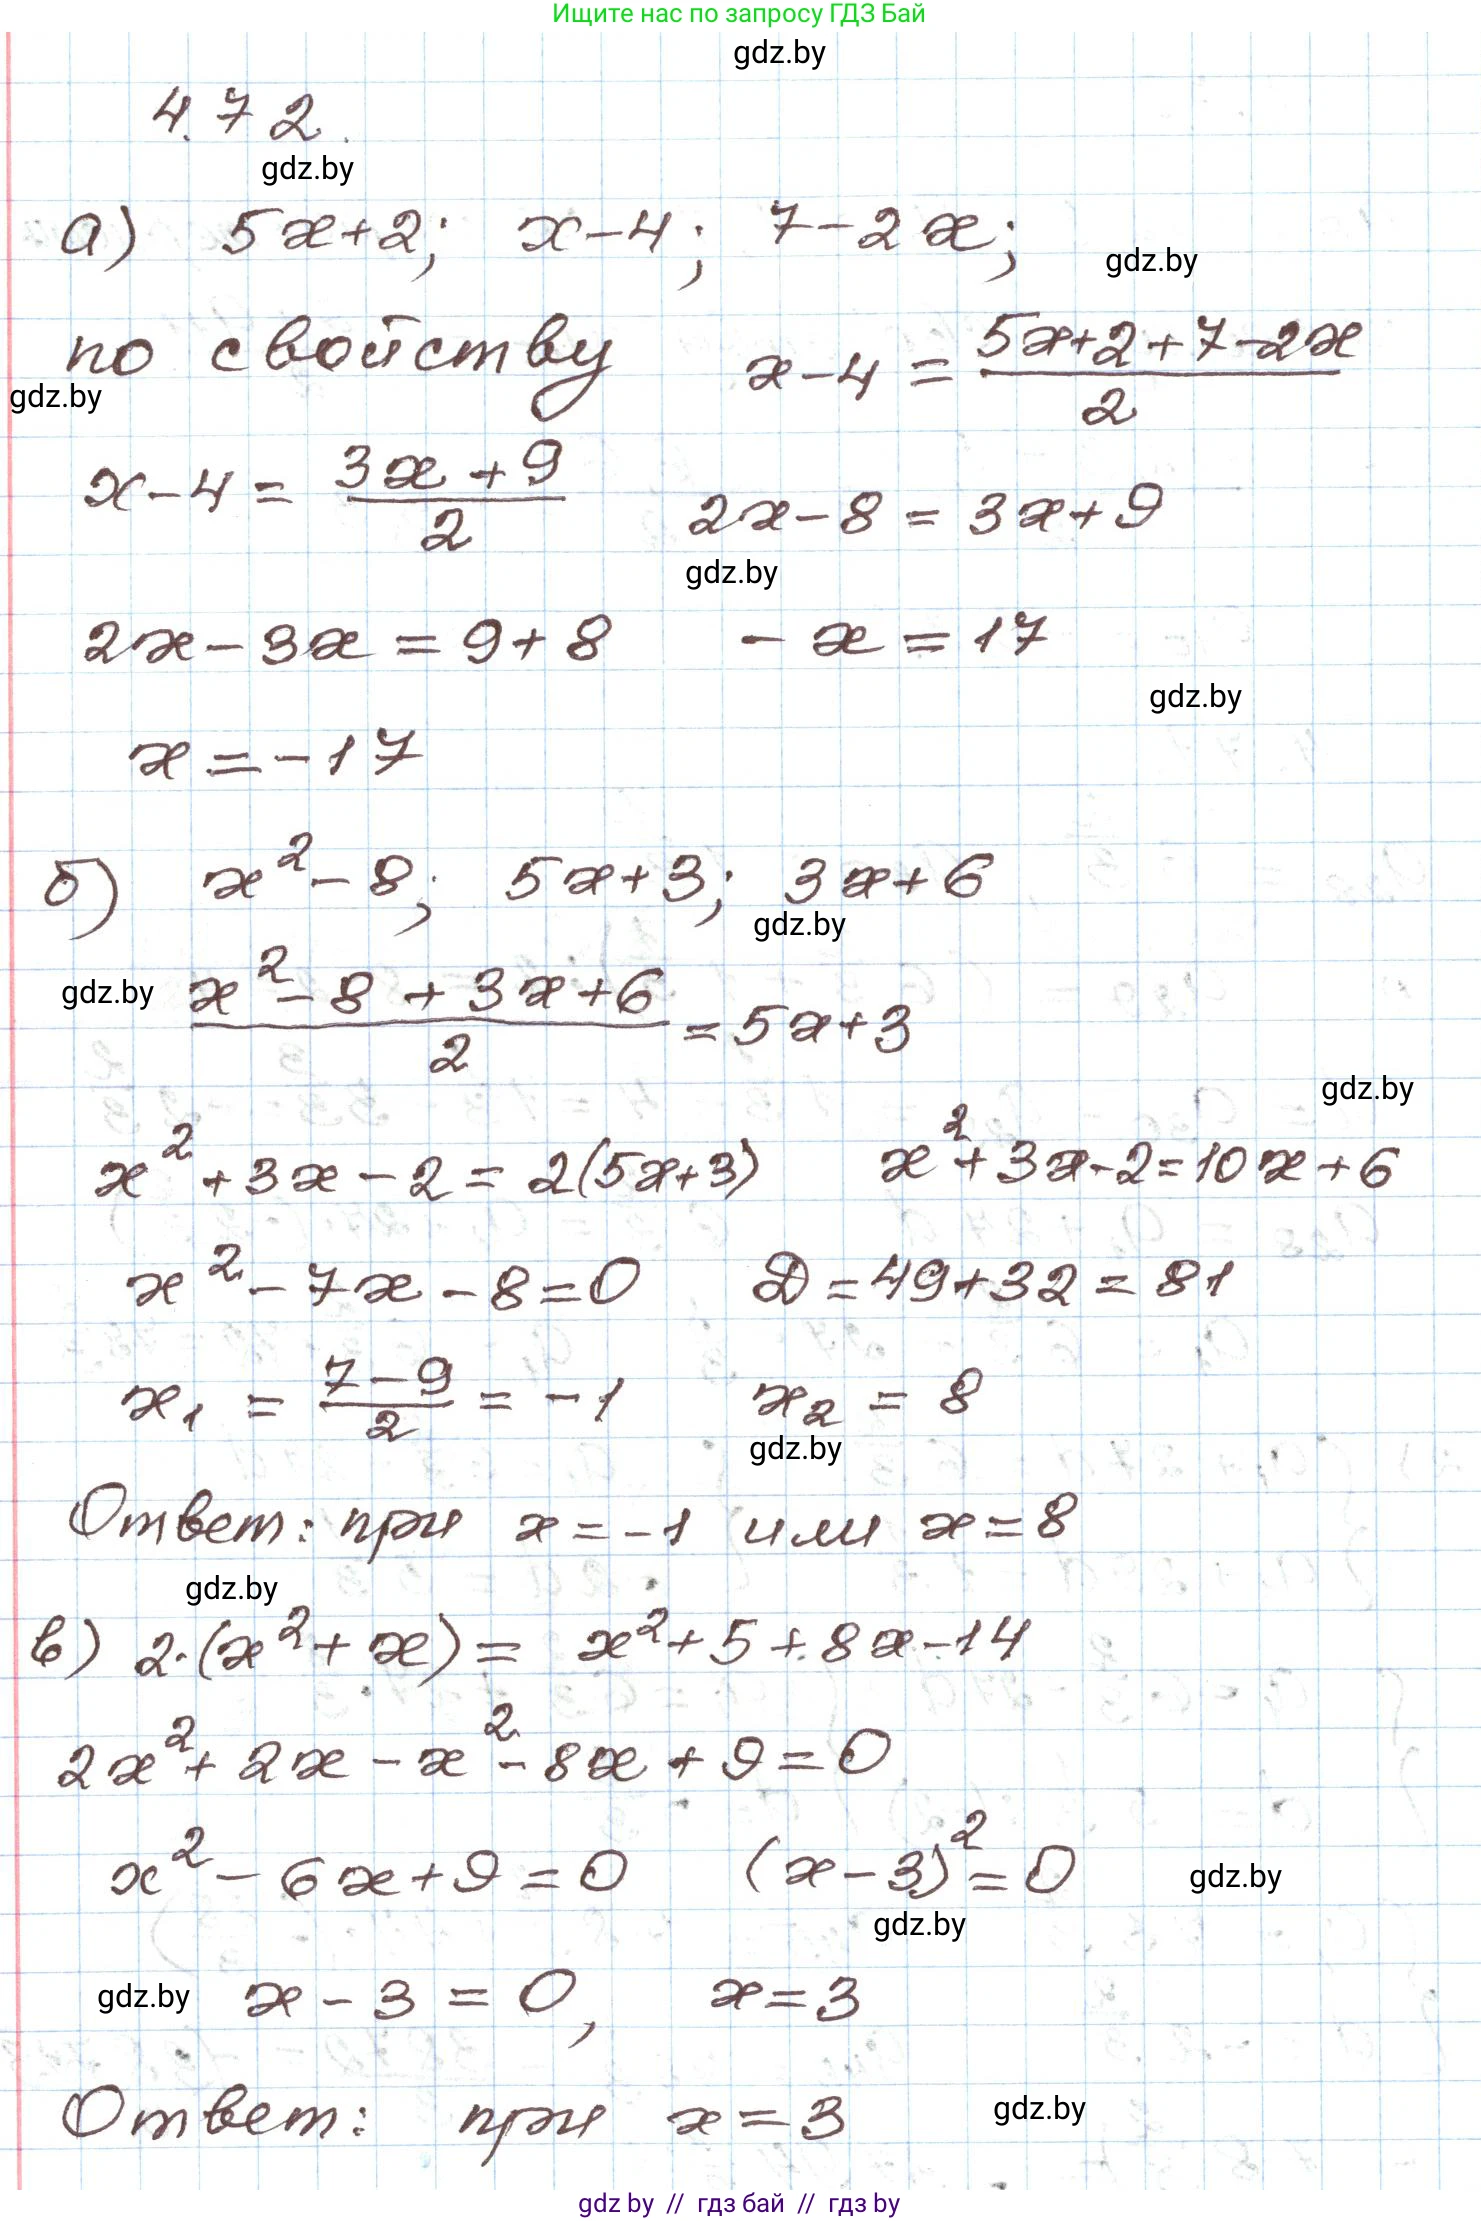 Ищите нас по запросу ГДЗ Бай
gdz.by
4.72.
gdz.by
а) 5x+2; x-4; 7-2x;
gdz.by
по свойству x-4 = (5x+2+7-2x)/2
gdz.by
x-4 = (3x+9)/2 2x-8 = 3x+9
gdz.by
2x-3x = 9+8 -x = 17
gdz.by
x = -17
б) x²-8; 5x+3; 3x+6
gdz.by
gdz.by (x²-8+3x+6)/2 = 5x+3
gdz.by
x²+3x-2 = 2(5x+3) x²+3x-2=10x+6
x²-7x-8=0 D=49+32=81
x₁ = (7-9)/2 = -1 x₂ = 8
gdz.by
Ответ: при x=-1 или x=8
gdz.by
в) 2·(x²+x) = x²+5+8x-14
2x²+2x-x²-8x+9=0
x²-6x+9=0 (x-3)²=0 gdz.by
gdz.by
gdz.by x-3=0, x=3
Ответ: при x=3 gdz.by
gdz by // гдз бай // гдз by